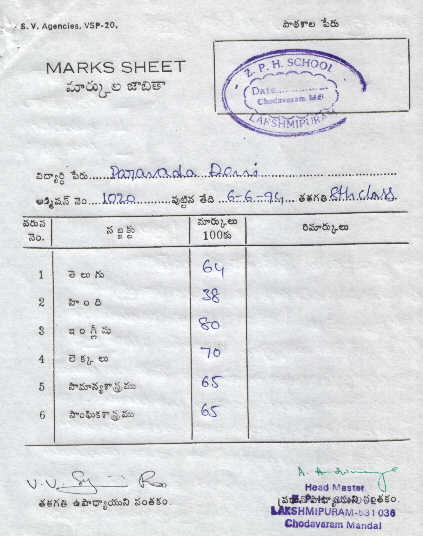 S. V. Agencies, VSP-20.
పాఠశాల పేరు
MARKS SHEET
మార్కుల జాబితా
Z. P. H. SCHOOL
Date
Chodavaram Mdl.
LAKSHMIPURAM
విద్యార్థి పేరు Paravada Devi
అడ్మిషన్ నెం. 1020 పుట్టిన తేది 6-6-94 తరగతి 8th class
వరుస నెం. సబ్జక్టు మార్కులు 100కు రిమార్కులు
1 తెలుగు 64
2 హింది 38
3 ఇంగ్లీషు 80
4 లెక్కలు 70
5 సామాన్యశాస్త్రము 65
6 సాంఘికశాస్త్రము 65
తరగతి ఉపాధ్యాయుని సంతకం.
Head Master
Z. P. H. SCHOOL
LAKSHMIPURAM-531036
Chodavaram Mandal